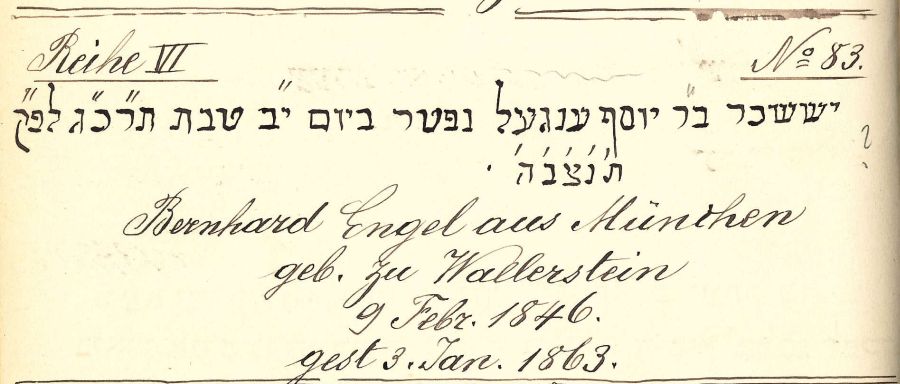 Reihe VI
No 83.
יששכר ב״ר יוסף ענגעל נפטר ביום י״ב טבת תרכ״ג לפ״ק
ת׳נ׳צ׳ב׳ה׳.
Bernhard Engel aus München
geb. zu Wallerstein
9 Febr. 1846.
gest 3. Jan. 1863.